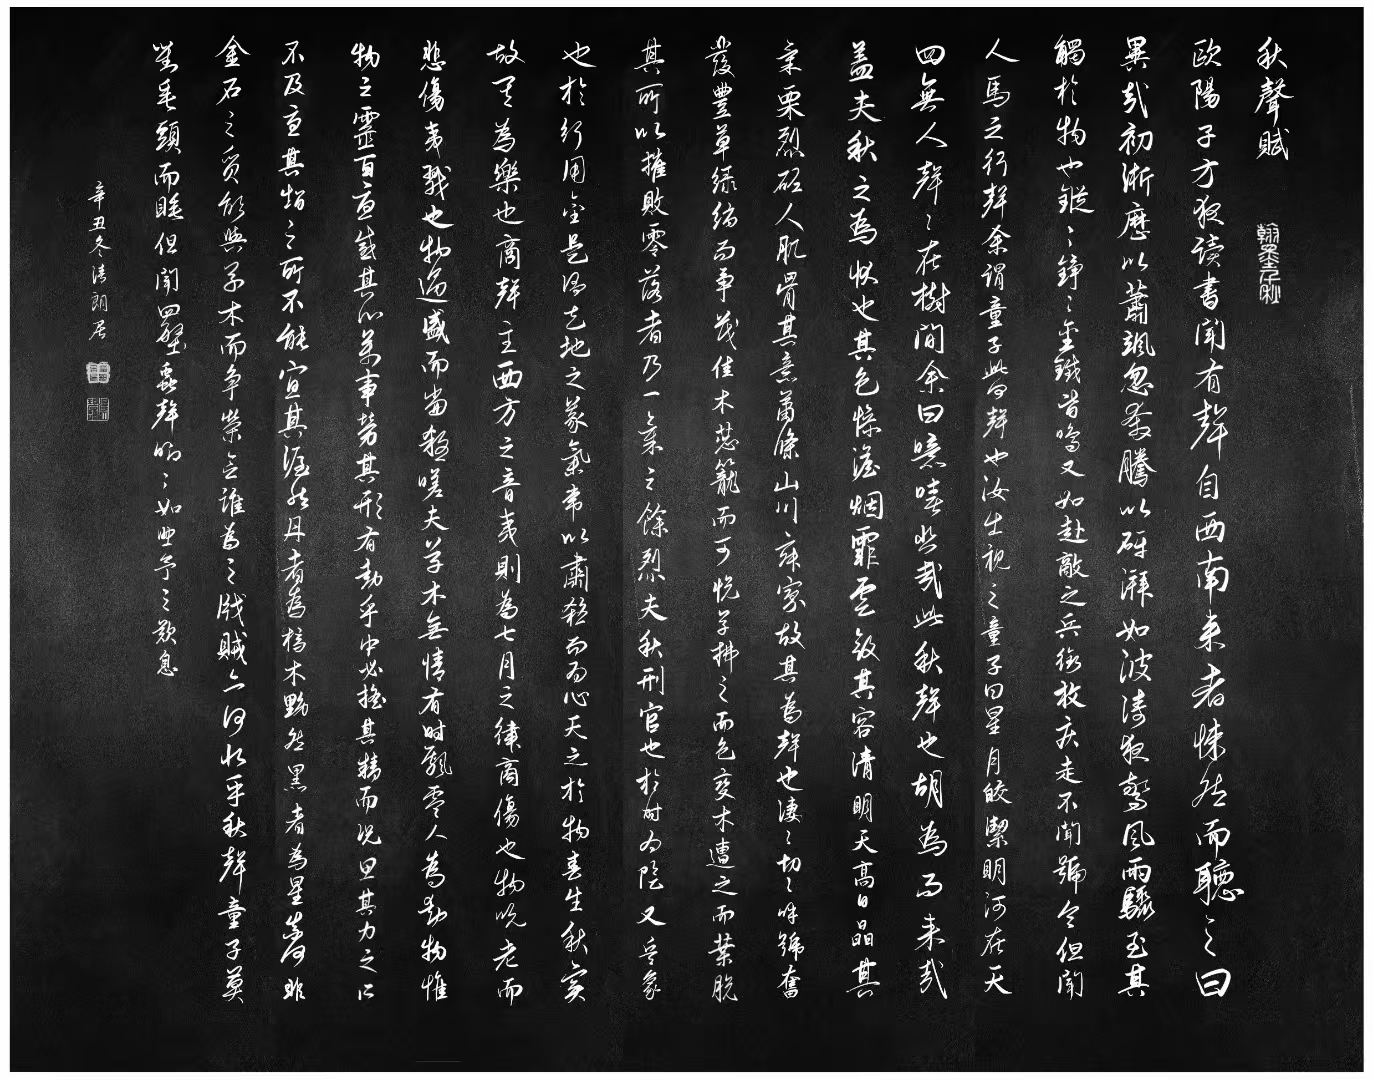 秋聲賦
歐陽子方夜读書聞有聲自西南来者悚然而聽之曰
異哉初淅瀝以蕭颯忽奔騰以砰湃如波濤夜驚風雨驟至其
觸於物也鏦〻錚〻金鐵皆鳴又如赴敵之兵銜枚疾走不聞號令但聞
人馬之行聲余謂童子此何聲也汝出視之童子曰星月皎潔明河在天
四無人聲〻在樹間余曰噫嘻悲哉此秋聲也胡為而来哉
盖夫秋之為狀也其色慘澹烟霏雲斂其容清明天高日晶其
氣栗烈砭人肌骨其意蕭條山川寂寥故其為聲也淒〻切〻呼號奮
發豐草绿縟而爭茂佳木葱籠而可悦草拂之而色变木遭之而葉脱
其所以摧敗零落者乃一氣之餘烈夫秋刑官也於时为陰又兵象
也於行用金是謂天地之義氣常以肅殺而为心天之於物春生秋實
故其為樂也商聲主西方之音夷則為七月之律商傷也物既老而
悲傷夷戮也物過盛而當殺嗟夫草木無情有时飄零人為動物惟
物之靈百憂感其心萬事勞其形有動乎中必搖其精而况思其力之所
不及憂其智之所不能宜其渥然丹者為槁木黟然黑者為星星奈何非
金石之質欲與草木而争榮念誰為之戕賊亦何恨乎秋聲童子莫
對垂頭而睡但聞四壁蟲聲唧〻如助予之歎息
辛丑冬清朗居